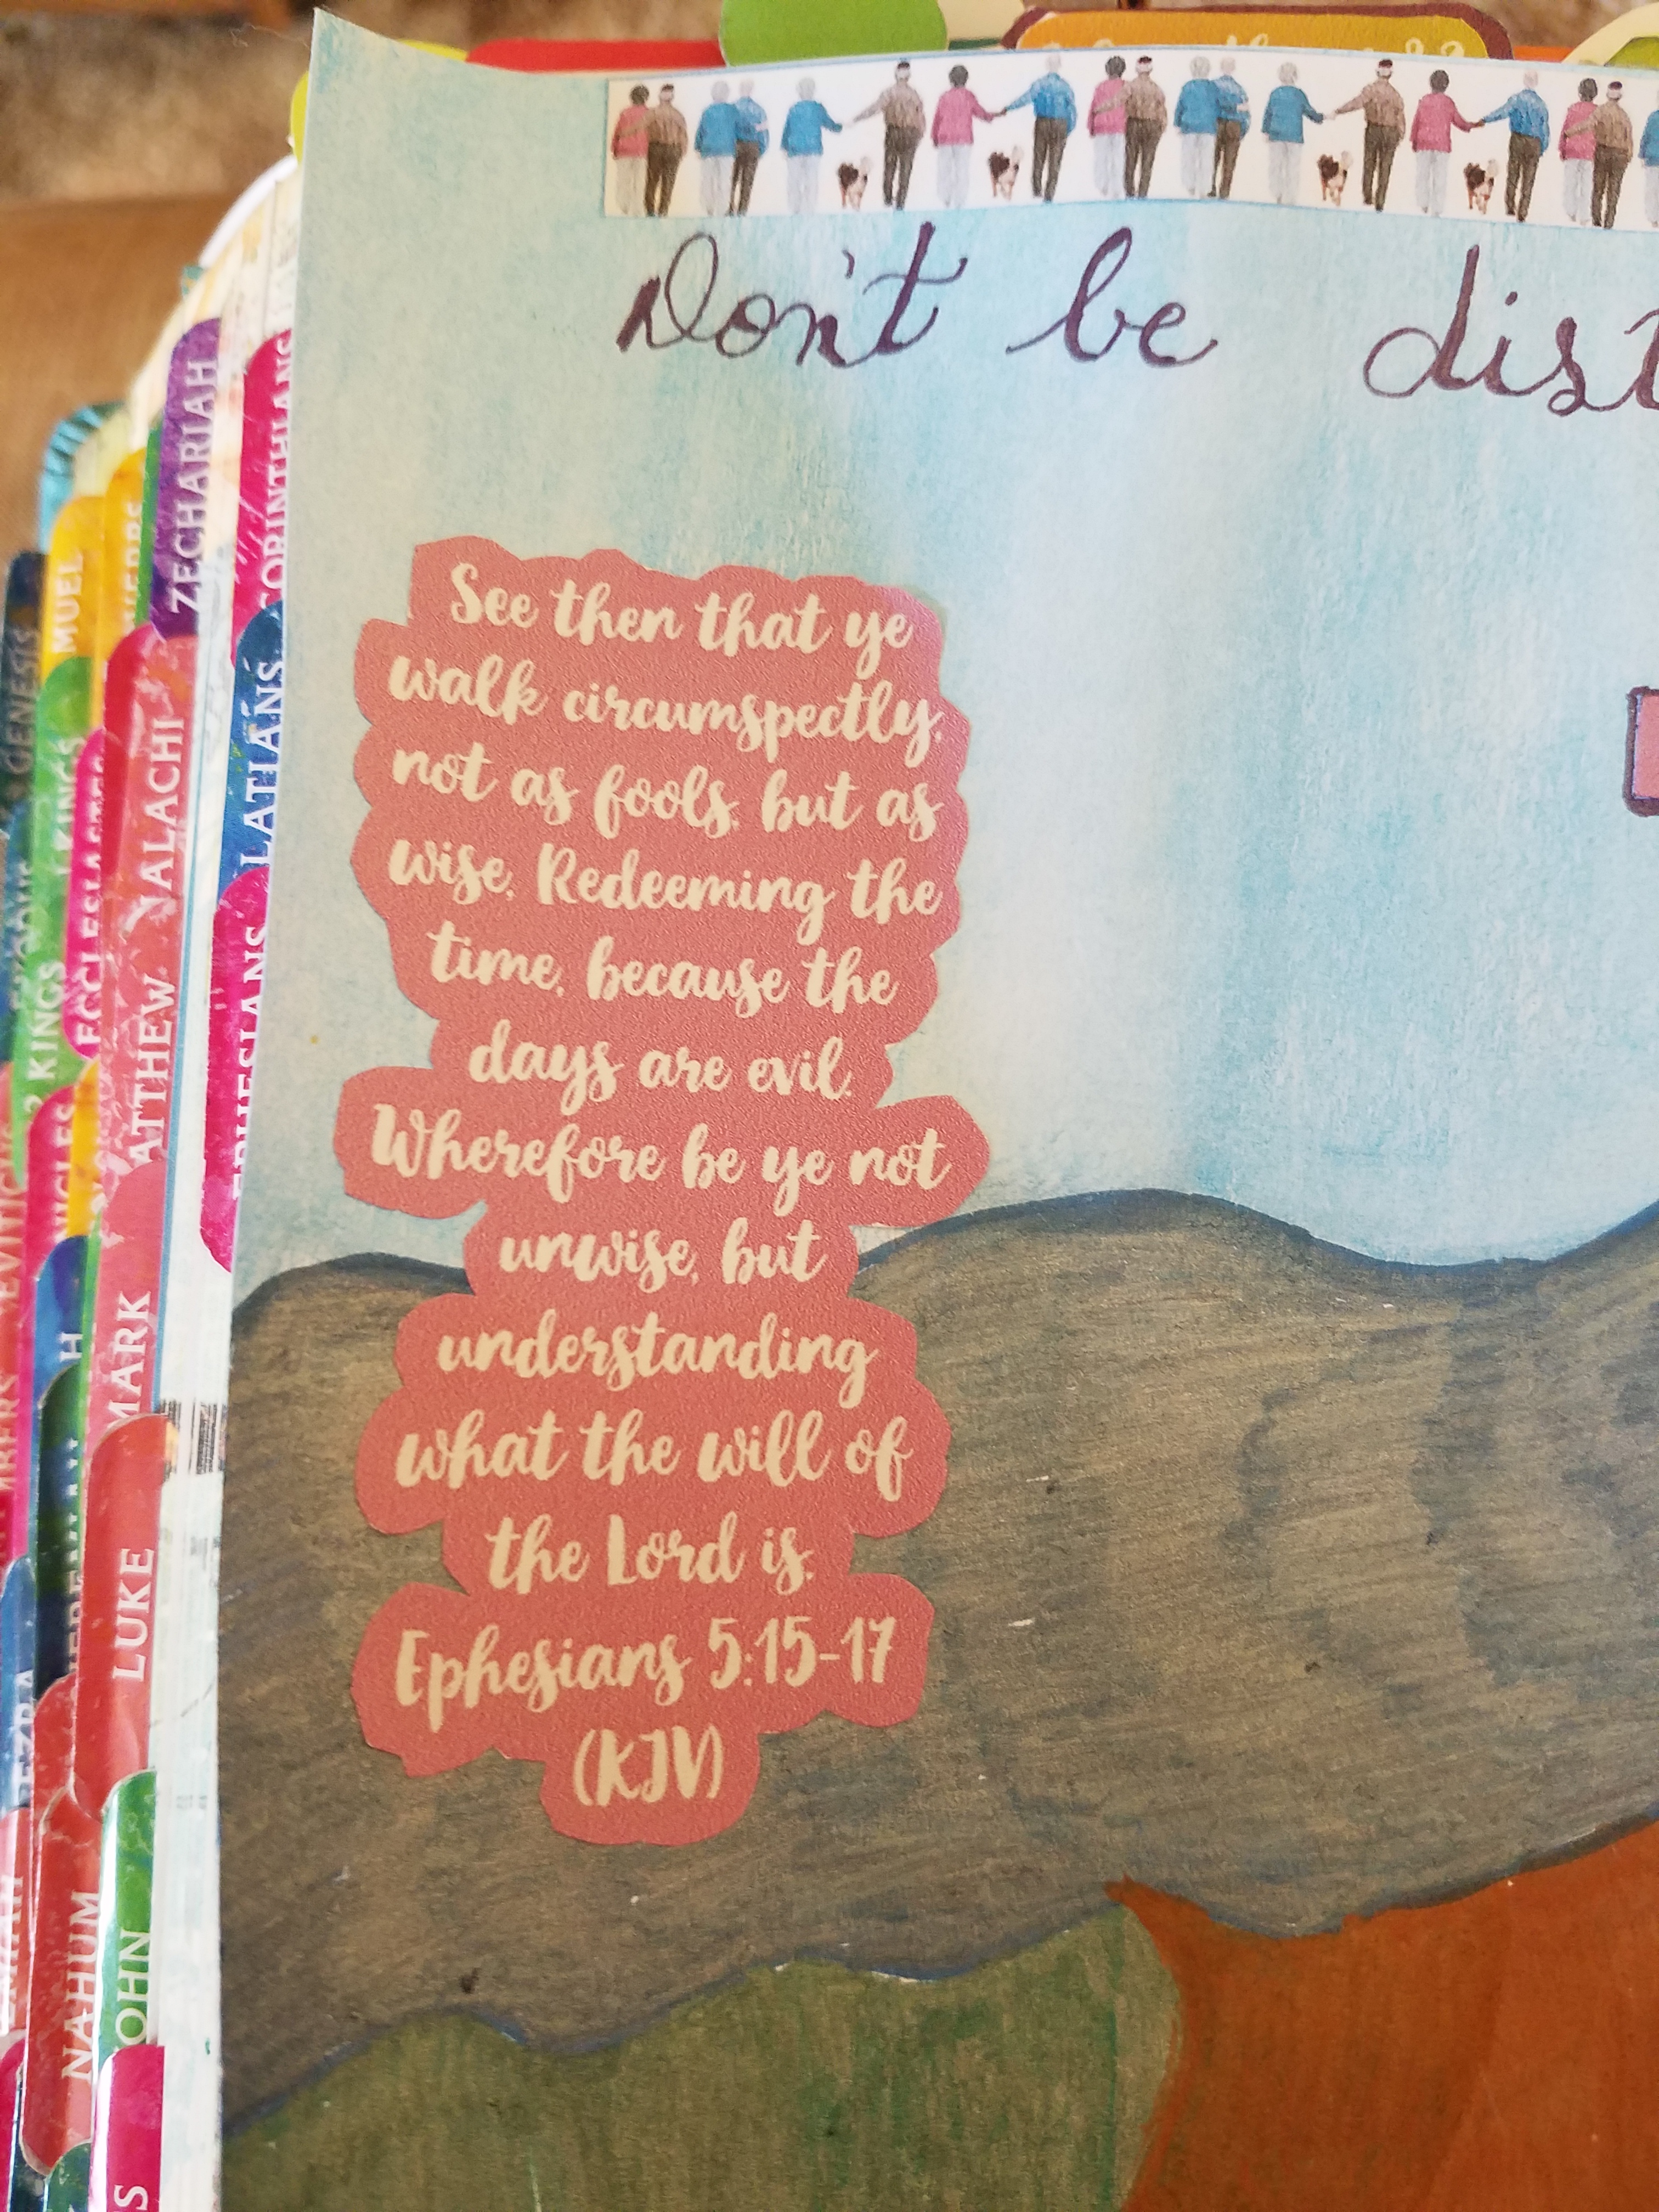 Don't be
See then that ye
walk circumspectly,
not as fools, but as
wise, Redeeming the
time, because the
days are evil.
Wherefore be ye not
unwise, but
understanding
what the will of
the Lord is.
Ephesians 5:15-17
(KJV)
GENESIS
MUEL
ZECHARIAH
CORINTHIANS
1 KINGS
ALACHI
LATIANS
2 KINGS
ECCLESIASTES
ATTHEW
EPHESIANS
MARK
LUKE
EZRA
NAHUM
OHN